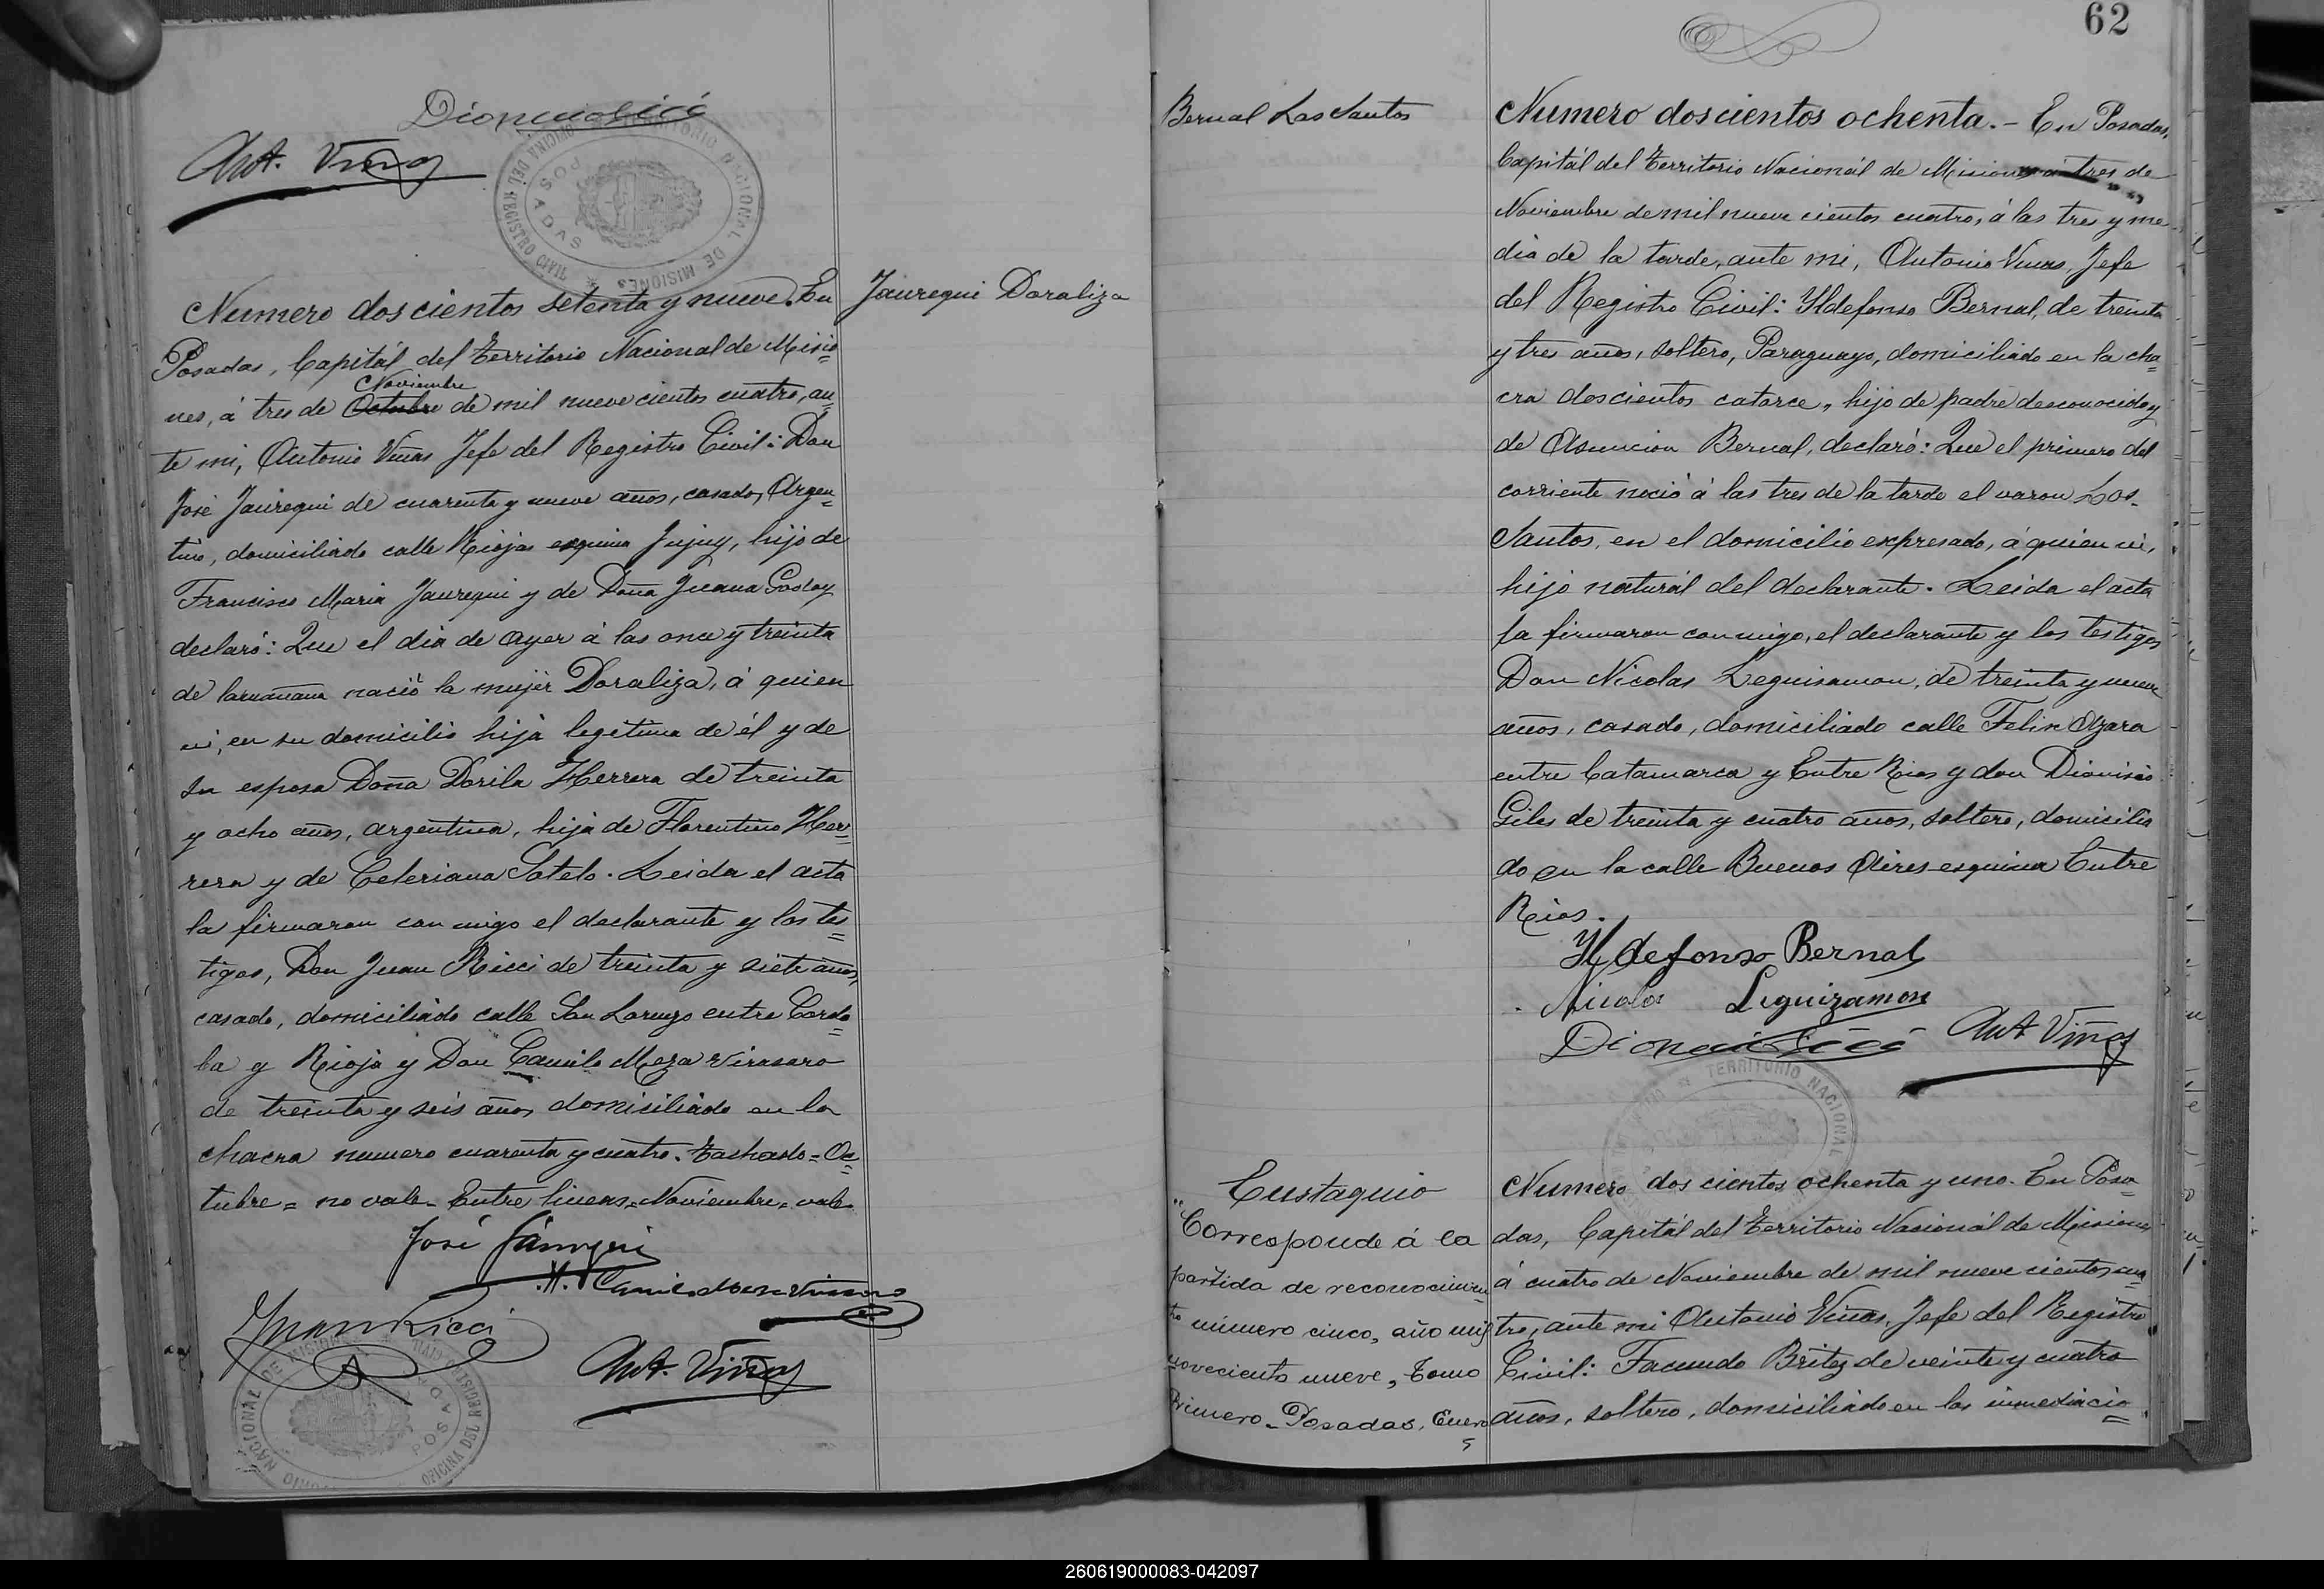 Ant. Viñas
OFICINA DEL REGISTRO CIVIL
TERRITORIO NACIONAL DE MISIONES
POSADAS
Jauregui Doraliza
Numero doscientos setenta y nueve. En
Posadas, Capitál del Territorio Nacional de Misio=
nes, á tres de Octubre de mil nuevecientos cuatro, an=
Noviembre
te mi, Antonio Viñas Jefe del Registro Civil: Don
José Jauregui de cuarenta y nueve años, casado, Argen=
tino, domiciliado calle Rioja esquina Jujuy, hijo de
Francisco Maria Jauregui y de Doña Juana
declaró: Que el dia de ayer á las once y treinta
de la mañana nació la mujer Doraliza, á quien
vi, en su domicilio hija legitima de él y de
su esposa Doña Dorila Herrera de treinta
y ocho años, argentina, hija de Florentino Her=
rera y de Celeriana Sotelo. Leida el acta
la firmaron conmigo el declarante y los tes=
tigos, Don Juan Ricci de treinta y siete años,
casado, domiciliado calle San Lorenzo entre Cordo=
ba y Rioja y Don Camilo Meza Virasaro
de treinta y seis años domiciliado en la
chacra numero cuarenta y cuatro. Tachado=Oc=
tubre= no vale- Entre lineas=Noviembre=vale.
José Jáuregui
Juan Ricci
Ant. Viñas
62
Bernal Los Santos
Numero doscientos ochenta.- En Posadas,
Capitál del Territorio Nacionál de Misiones á tres de
Noviembre de mil nuevecientos cuatro, á las tres y me
dia de la tarde, ante mi, Antonio Viñas, Jefe
del Registro Civil: Yldefonso Bernal, de treinta
y tres años, soltero, Paraguayo, domiciliado en la cha=
cra doscientos catorce, hijo de padre desconocido y
de Asuncion Bernal, declaró: Que el primero del
corriente nació á las tres de la tarde el varon Los
Santos, en el domicilio expresado, á quien vi,
hijo naturál del declarante. Leida el acta
la firmaron conmigo, el declarante y los testigos
Don Nicolas Leguisamon, de treinta y nueve
años, casado, domiciliado calle Felix Azara
entre Catamarca y Entre Rios y don Dionisio
Giles de treinta y cuatro años, soltero, domicilia
do en la calle Buenos Aires esquina Entre
Rios.
Yldefonso Bernal
Nicolas Leguizamon
Ant Viñas
TERRITORIO NACIONAL
Eustaquio
"Corresponde á la
partida de reconocimien
to número cinco, año mil
novecientos nueve, Tomo
Primero - Posadas, Enero
Numero doscientos ochenta y uno. En Posa
das, Capitál del Territorio Nacionál de Misiones
á cuatro de Noviembre de mil nuevecientos cua
tro, ante mi Antonio Viñas, Jefe del Registro
Civil: Facundo Britez de veinte y cuatro
años, soltero, domiciliado en las inmediacio=
260619000083-042097